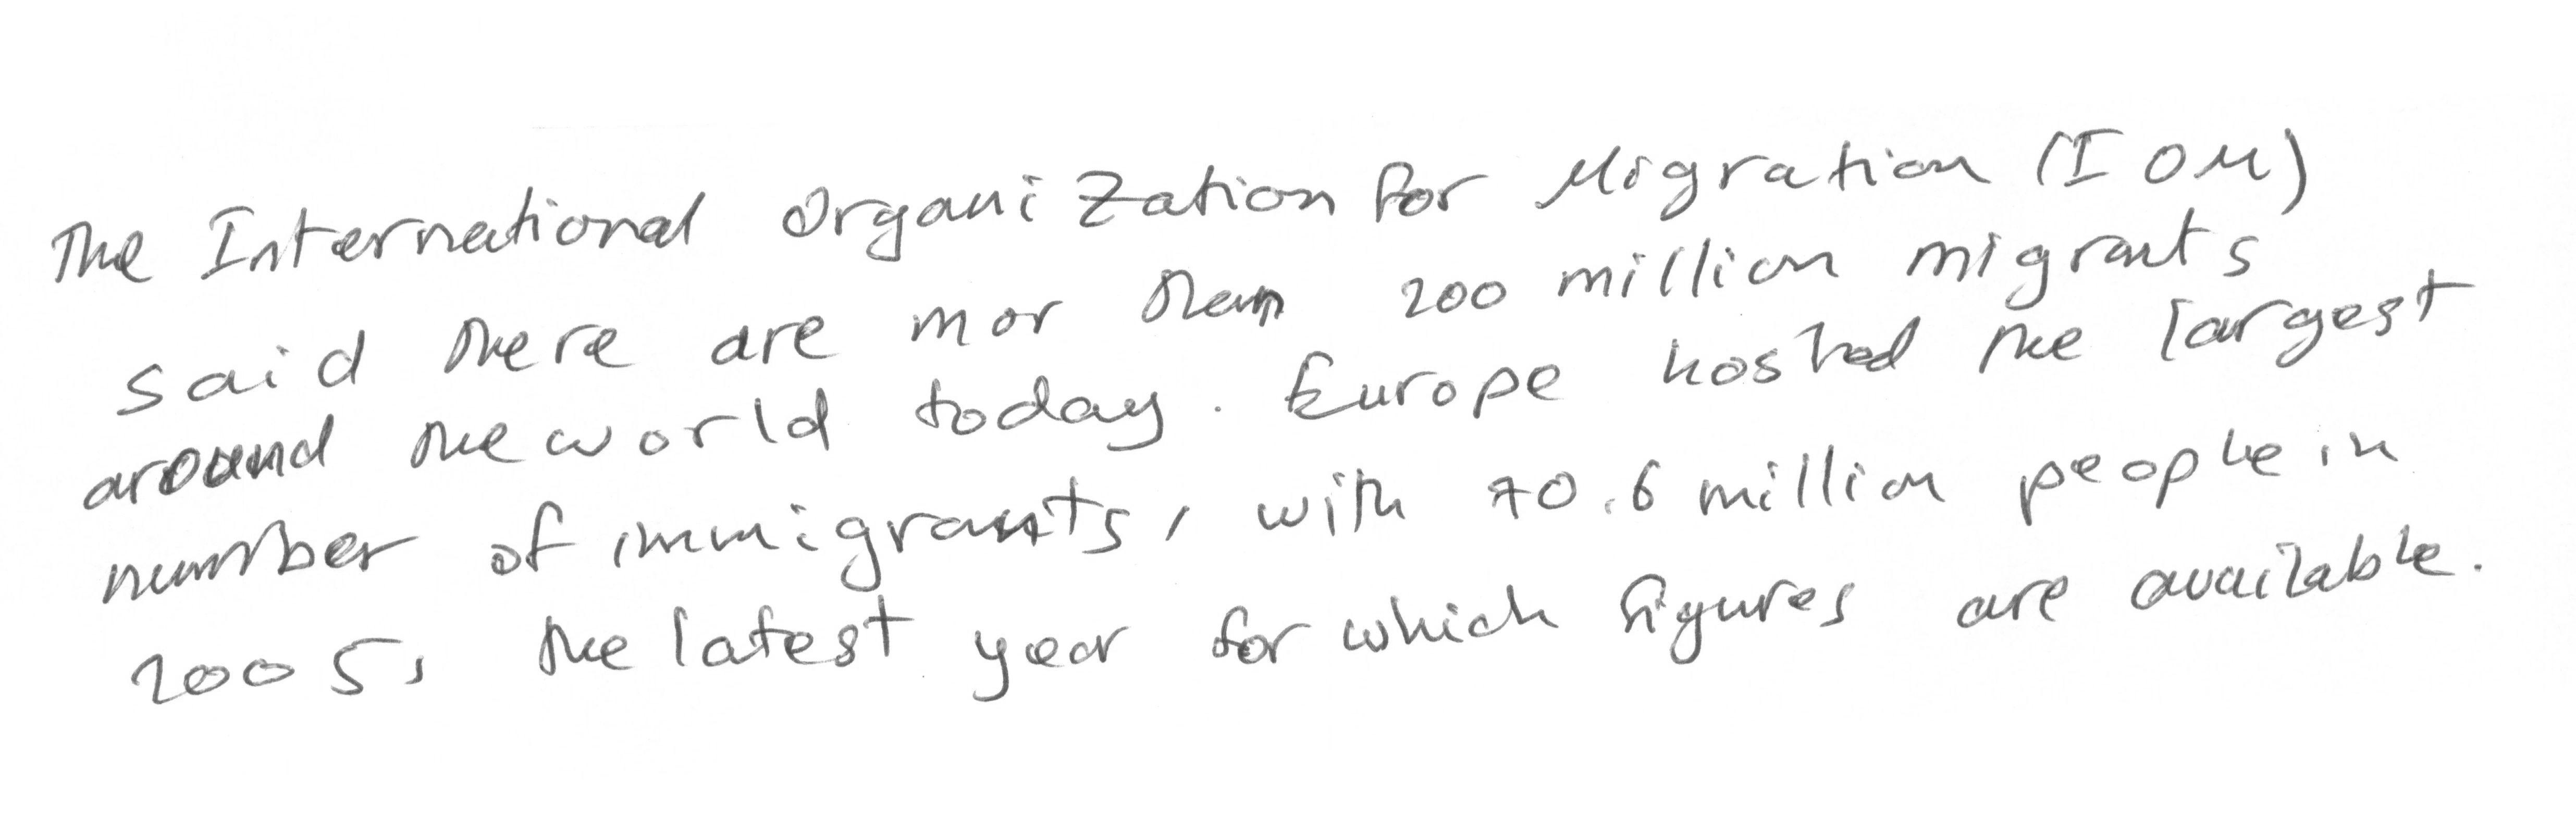 The International Organization for Migration (IOM)
said there are mor than 200 million migrants
around the world today. Europe hosted the largest
number of immigrants, with 70.6 million people in
2005, the latest year for which figures are available.